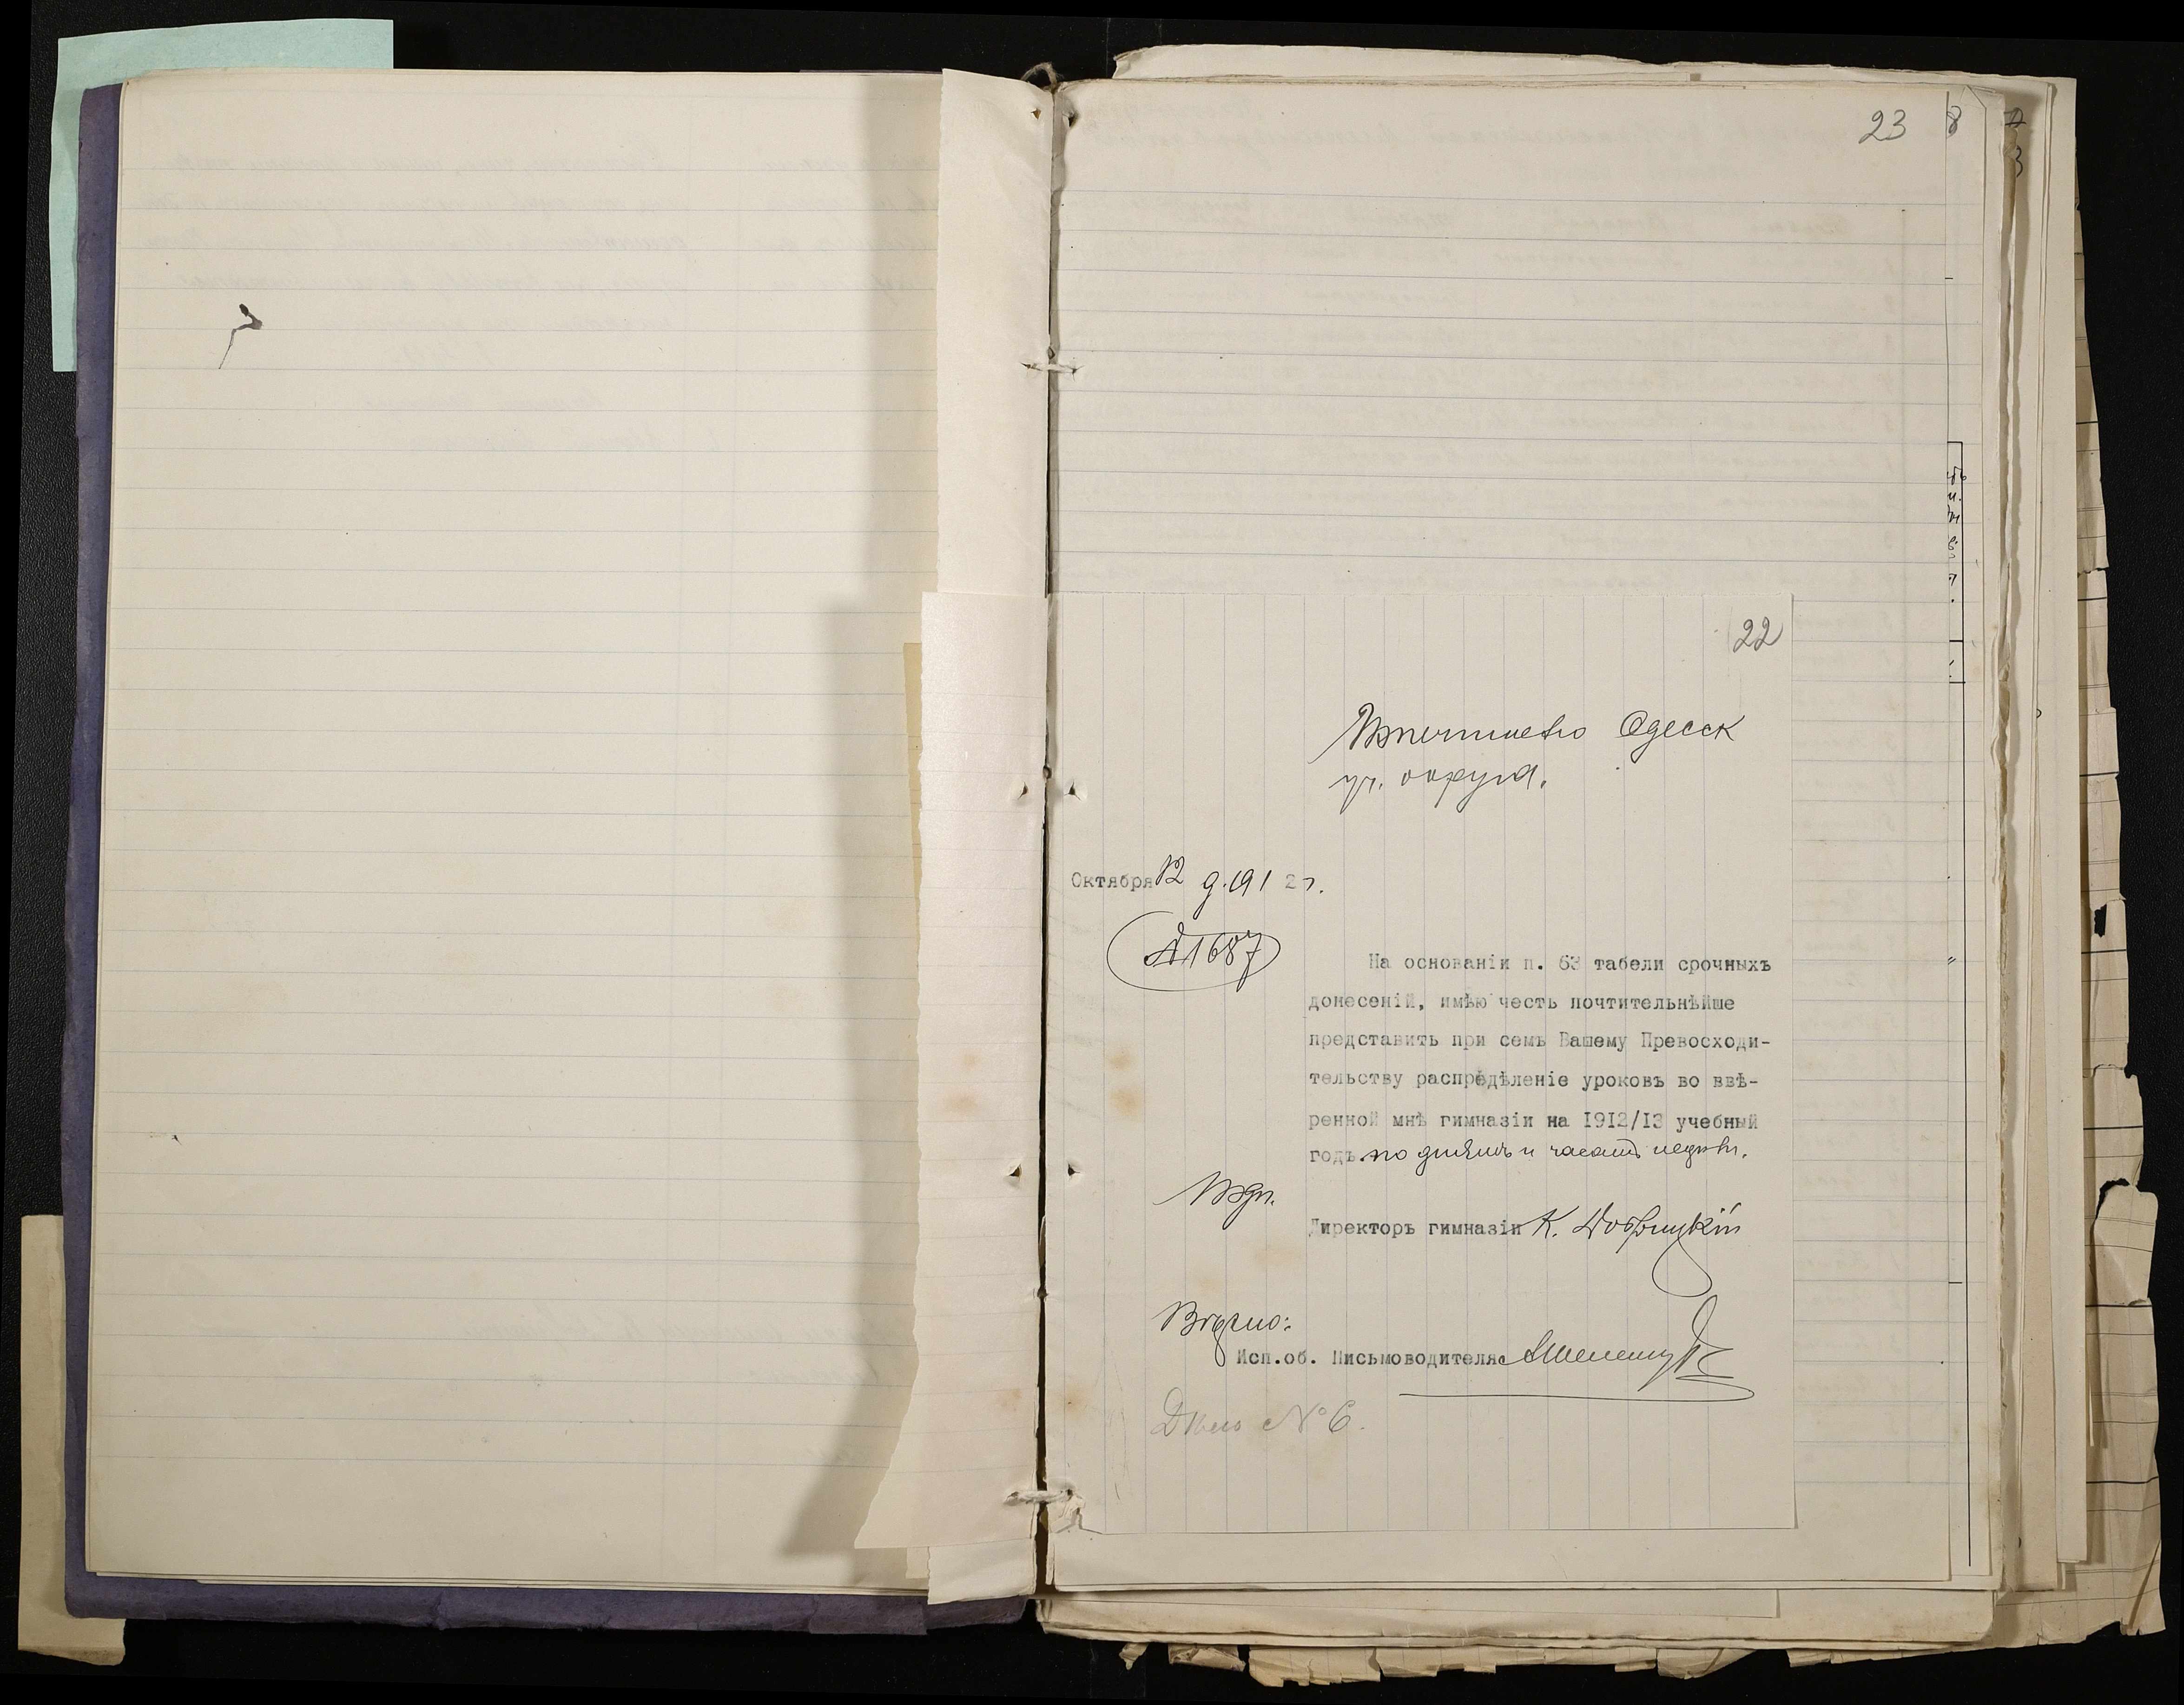 23
22
Попечителю Одесск
уч. округа.
Октября 12 д. 1912 г.
№ 1687
На основаніи п. 63 табели срочныхъ
донесеній, имѣю честь почтительнѣйше
представить при семъ Вашему Превосходи-
тельству распредѣленіе уроковъ во ввѣ-
ренной мнѣ гимназіи на 1912/13 учебный
годъ по днямъ и часамъ недѣли.
Директоръ гимназіи К.
Вѣрно:
Исп.об. Письмоводителя
Дѣло № 6.